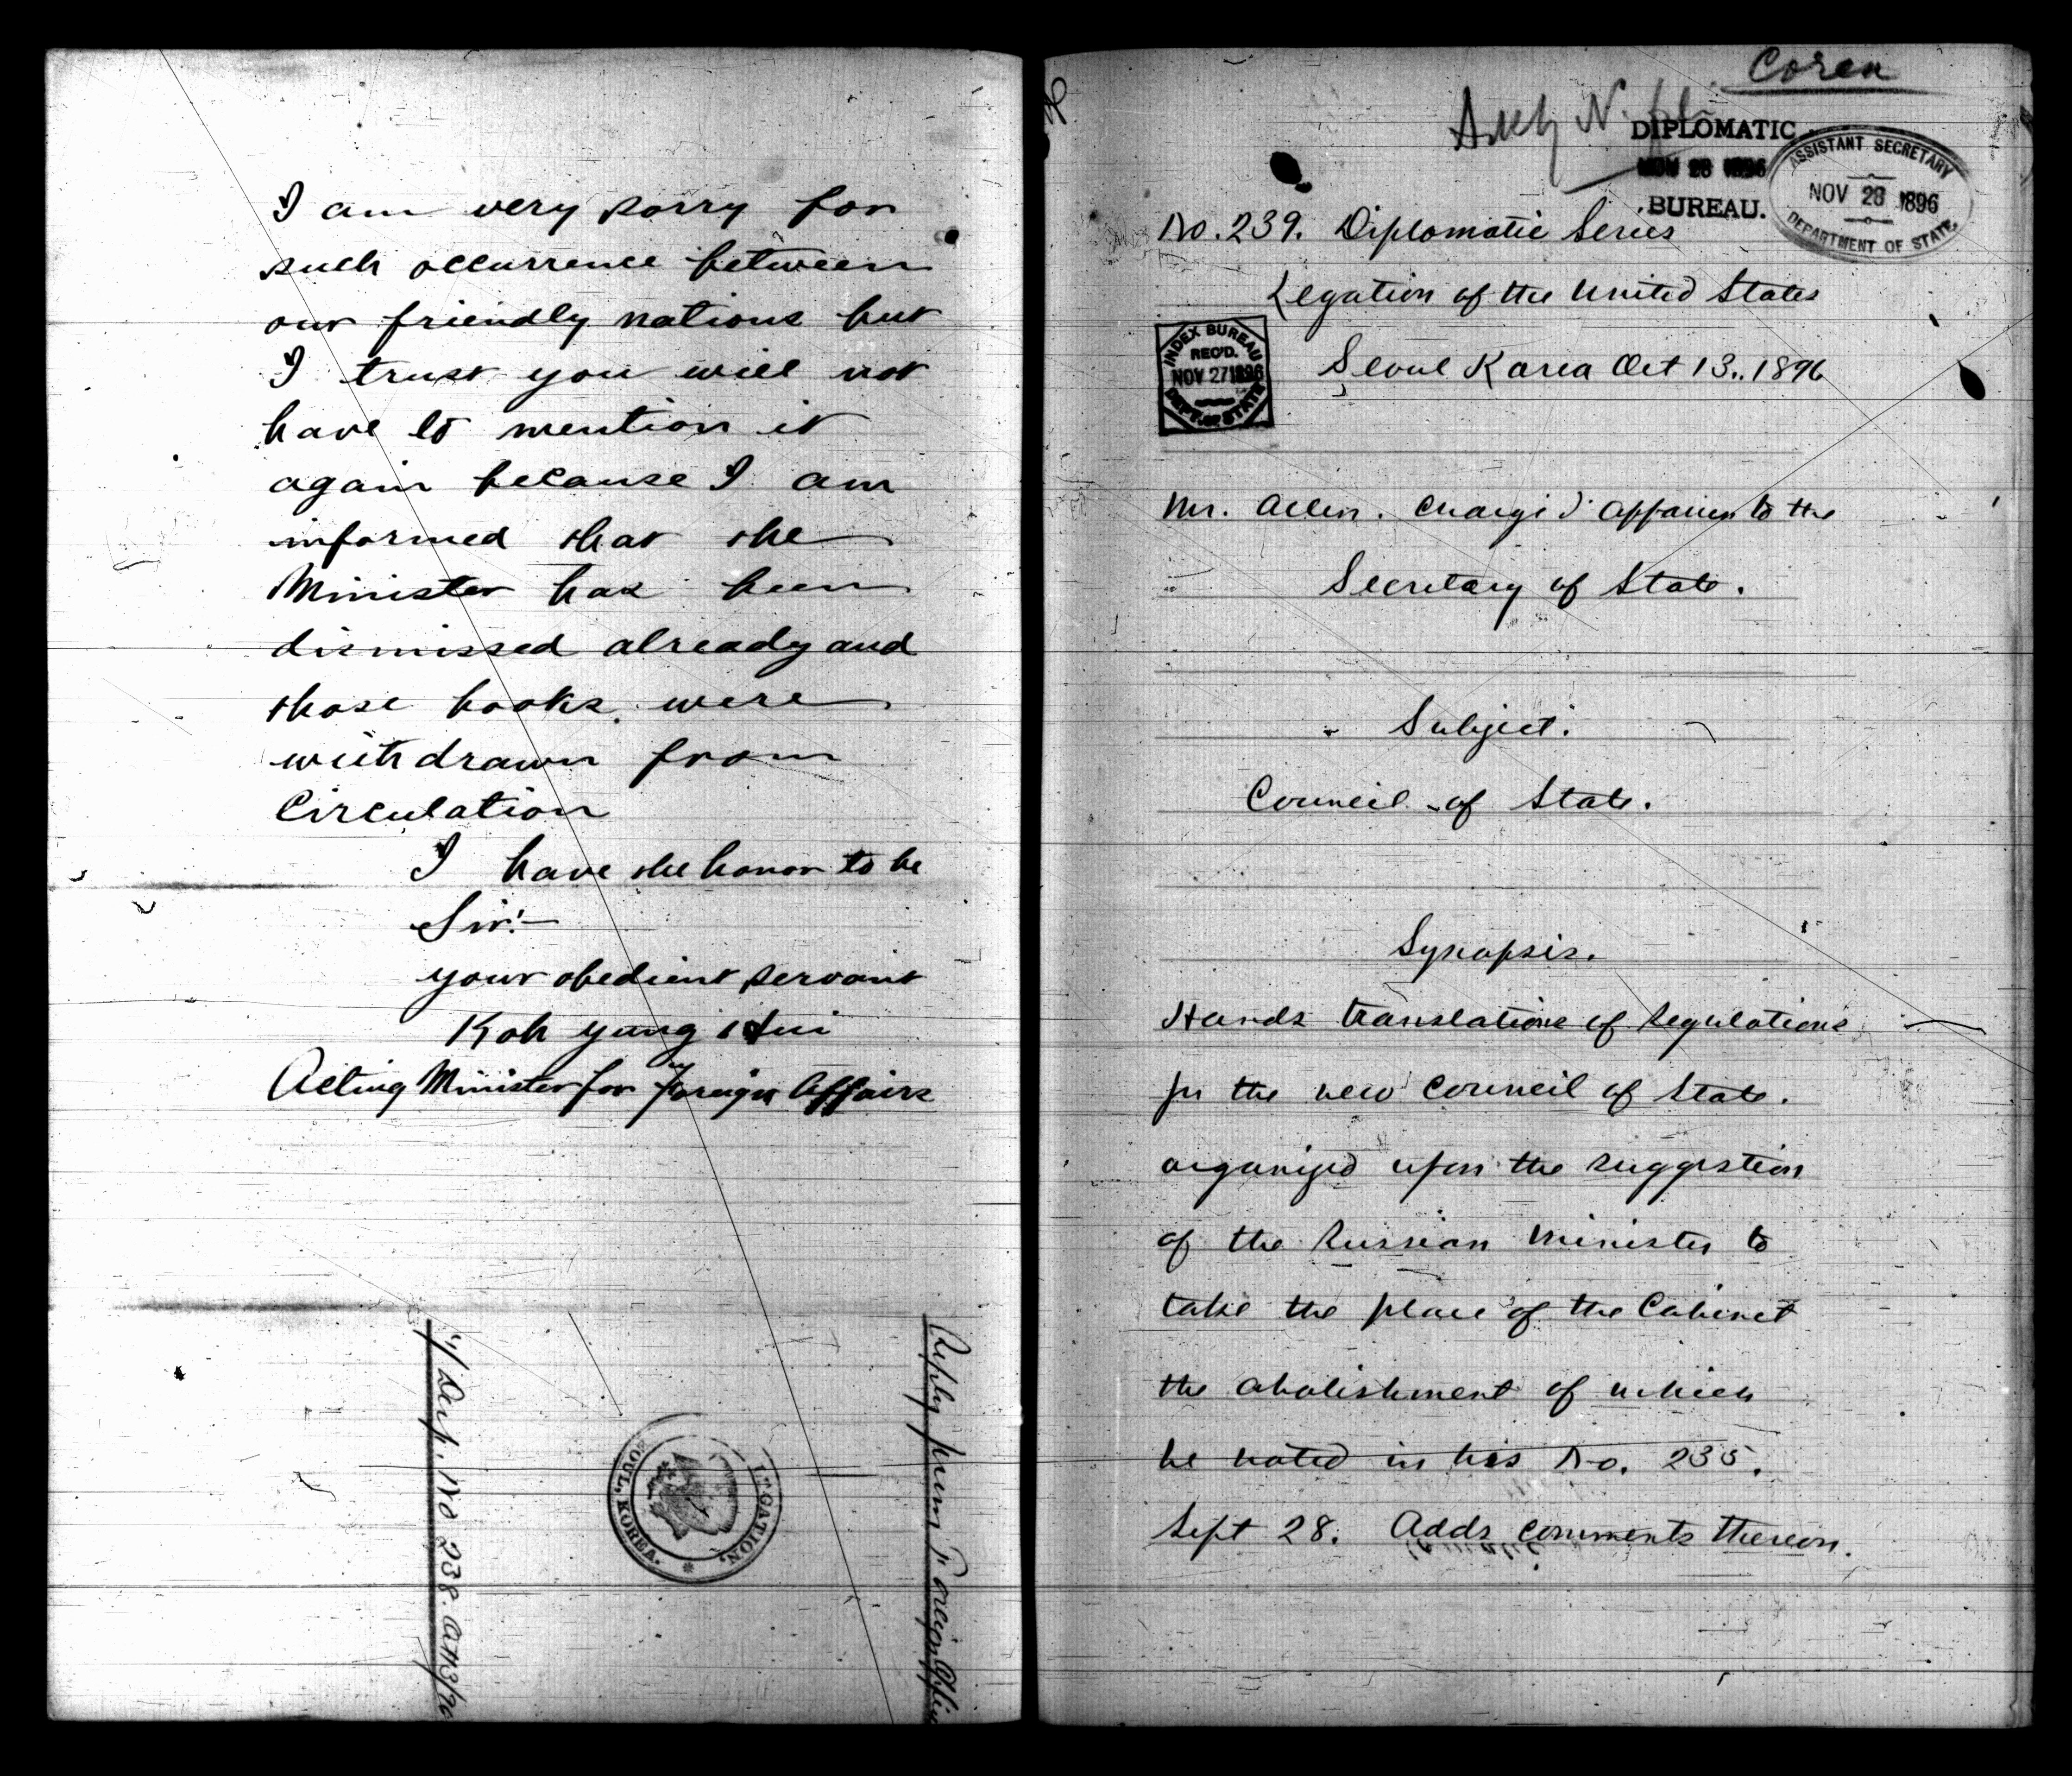 I am very sorry for
such occurrence between
our friendly nations but
I trust you will not
have to mention it
again because I am
informed that the
Minister has been
dismissed already and
those books were
withdrawn from
Circulation
I have the honor to be
Sir:-
your obedient servant
Koh Yung Hui
Acting Minister for Foreign Affairs
Reply from Foreign Office
LEGATION,
SEOUL, KOREA.
1/ Desp. No 238. Oct 13/96
Corea
DIPLOMATIC
NOV 28 1896
BUREAU.
ASSISTANT SECRETARY
NOV 28 1896
DEPARTMENT OF STATE
No. 239. Diplomatic Series
Legation of the United States
INDEX BUREAU
REC'D.
NOV 27 1896
DEPT. OF STATE
Seoul Korea Oct 13., 1896
Mr. Allen. Chargé d'Affaires to the
Secretary of State.
Subject:
Council of State.
Synopsis.
Hands translations of Regulations
for the new Council of State.
organized upon the suggestion
of the Russian Minister to
take the place of the Cabinet
the abolishment of which
he noted in his No. 235.
Sept 28. Adds comments thereon.